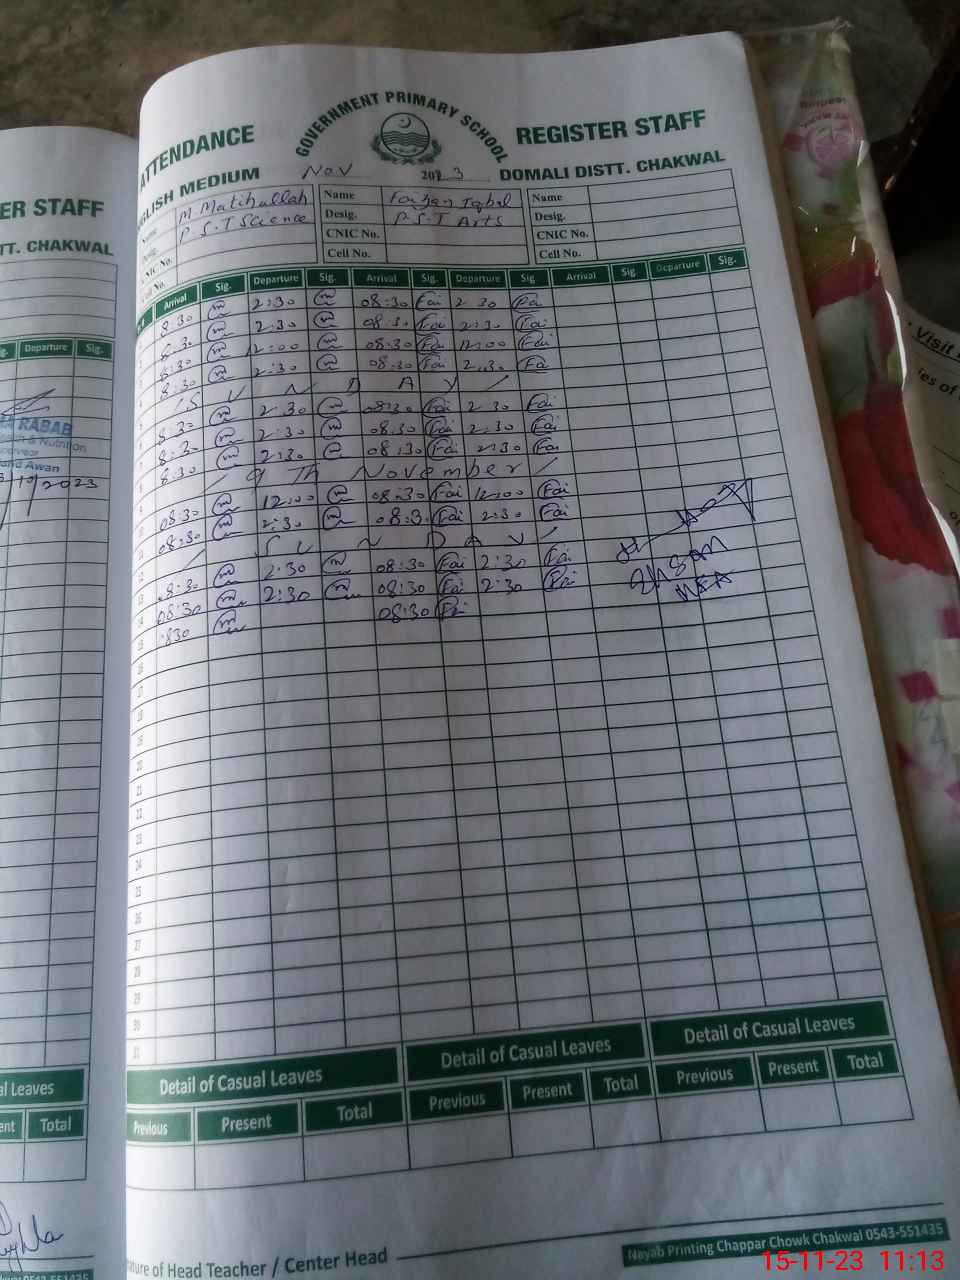 GOVERNMENT PRIMARY SCHOOL
ATTENDANCE REGISTER STAFF
ENGLISH MEDIUM Nov 2023 DOMALI DISTT. CHAKWAL
Name M Matihullah Name Faizan Iqbal Name
Desig. P.S.T Science Desig. P.S.T Arts Desig.
CNIC No. CNIC No. CNIC No.
Cell No. Cell No. Cell No.
Arrival Sig. Departure Sig. Arrival Sig. Departure Sig. Arrival Sig. Departure Sig.
8:30 m 2:30 m 08:30 Fai 2:30 Fai
8:30 m 2:30 m 08:30 Fai 2:30 Fai
8:30 m 12:00 m 08:30 Fai 12:00 Fai
8:30 m 2:30 m 08:30 Fai 2:30 Fai
SUNDAY
8:30 m 2:30 m 08:30 Fai 2:30 Fai
8:30 m 2:30 m 08:30 Fai 2:30 Fai
8:30 m 2:30 m 08:30 Fai 2:30 Fai
9Th November
08:30 m 12:00 m 08:30 Fai 12:00 Fai
08:30 m 2:30 m 08:30 Fai 2:30 Fai
12 SUNDAY
13 08:30 m 2:30 m 08:30 Fai 2:30 Fai
14 08:30 m 2:30 m 08:30 Fai 2:30 Fai
15 830 m 08:30 Fai
Ahsan
MEA
16
17
18
19
20
21
22
23
24
25
26
27
28
29
30
31
Detail of Casual Leaves Detail of Casual Leaves Detail of Casual Leaves
Previous Present Total Previous Present Total Previous Present Total
ature of Head Teacher / Center Head
Nayab Printing Chappar Chowk Chakwal 0543-551435
15-11-23 11:13
ER STAFF
TT. CHAKWAL
Departure Sig.
RABAB
& Nutrition
Awan
10/2023
al Leaves
ent Total
0543-551435
Visit
ies of